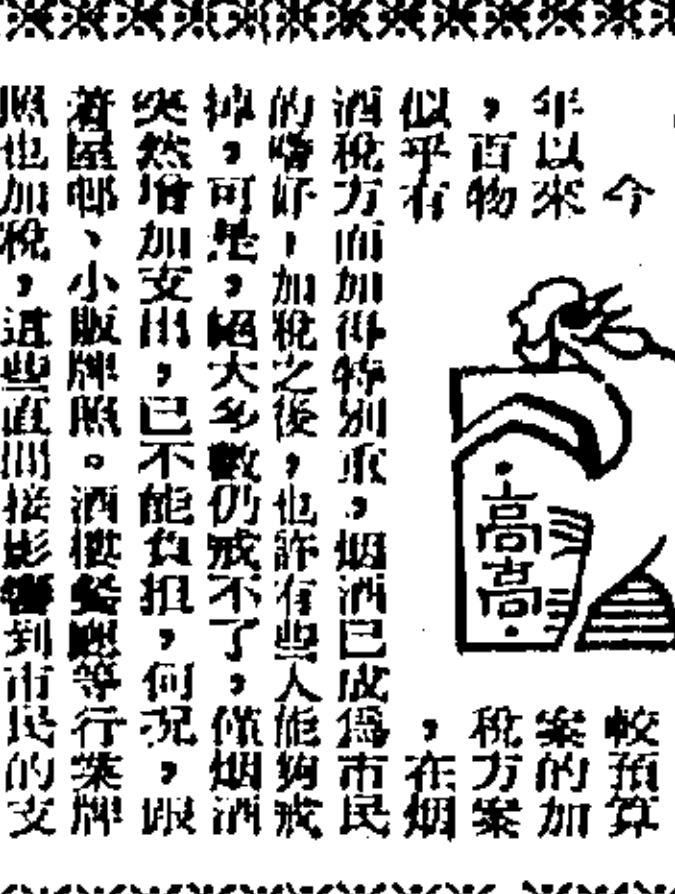 今
年以來
，百物
似乎有
高高
較預算
案的加
稅方案
，在烟
酒稅方面加得特別重，烟酒已成爲市民
的嗜好，加稅之後，也許有些人能夠戒
掉，可是，絕大多數仍戒不了，僅烟酒
突然增加支出，已不能負担，何況，跟
着屋邨、小販牌照。酒樓餐廳等行業牌
照也加稅，這些直間接影響到市民的支